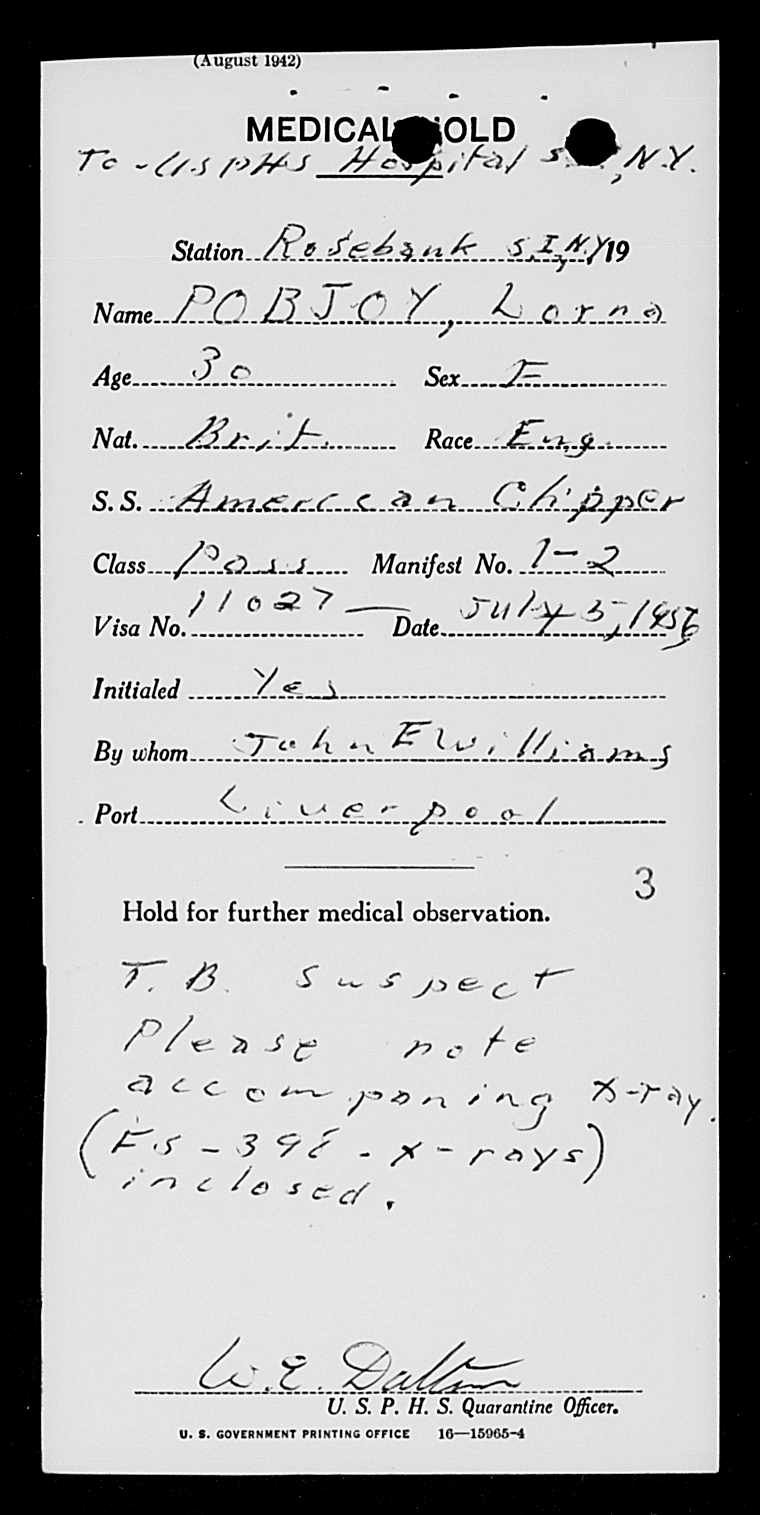 (August 1942)
MEDICAL HOLD
To - USPHS Hospital S. , N.Y.
Station Rosebank S.I., N.Y. 19
Name POBJOY, Lorna
Age 30 Sex F
Nat. Brit. Race Eng.
S. S. American Clipper
Class Pass Manifest No. 1-2
Visa No. 11027 — Date July 5, 1956
Initialed Yes
By whom John E Williams
Port Liverpool
3
Hold for further medical observation.
T.B. suspect
Please note
accompaning x-ray.
(FS-398 - x-rays)
inclosed.
W. E. Dalton
U. S. P. H. S. Quarantine Officer.
U. S. GOVERNMENT PRINTING OFFICE 16—15965-4